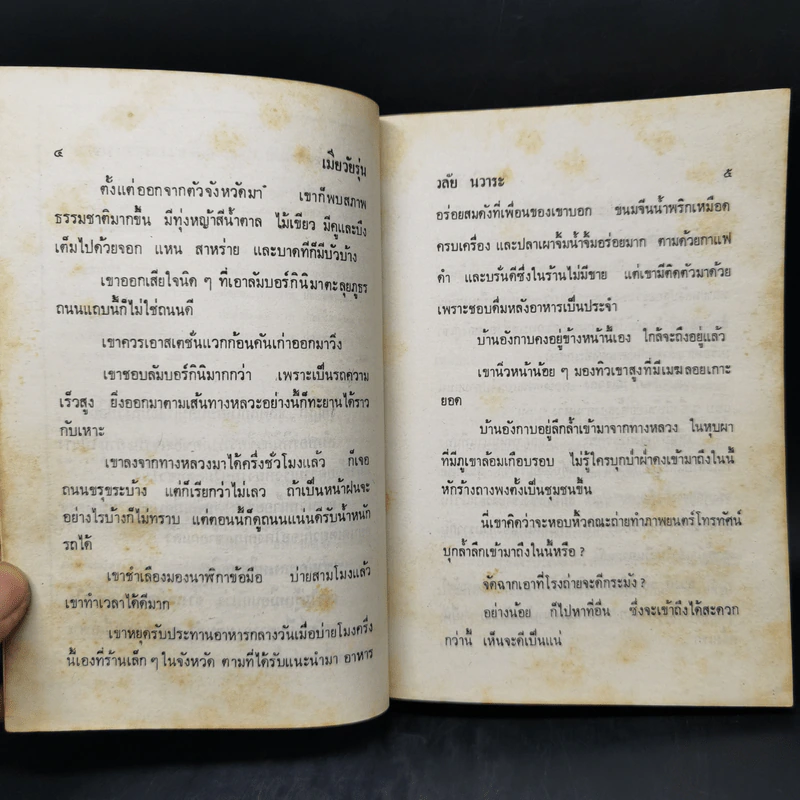 ๔
เมียวัยรุ่น
ตั้งแต่ออกจากตัวจังหวัดมา เขาก็พบสภาพ
ธรรมชาติมากขึ้น มีทุ่งหญ้าสีน้ำตาล ไม้เขียว มีคูและบึง
เต็มไปด้วยจอก แหน สาหร่าย และบาดทีก็มีบัวบ้าง
เขาออกเสียใจนิด ๆ ที่เอาลัมบอร์กินิมาตะลุยภูธร
ถนนแถบนี้ก็ไม่ใช่ถนนดี
เขาควรเอาสเตชั่นแวกก้อนคันเก่าออกมาวิ่ง
เขาชอบลัมบอร์กินิมากกว่า เพราะเป็นรถความ
เร็วสูง ยิ่งออกมาตามเส้นทางหลวะอย่างนี้ก็ทะยานได้ราว
กับเหาะ
เขาลงจากทางหลวงมาได้ครึ่งชั่วโมงแล้ว ก็เจอ
ถนนขรุขระบ้าง แต่ก็เรียกว่าไม่เลว ถ้าเป็นหน้าฝนจะ
อย่างไรบ้างก็ไม่ทราบ แต่ตอนนี้ก็ดูถนนแน่นดีรับน้ำหนัก
รถได้
เขาชำเลืองมองนาฬิกาข้อมือ บ่ายสามโมงแล้ว
เขาทำเวลาได้ดีมาก
เขาหยุดรับประทานอาหารกลางวันเมื่อบ่ายโมงครึ่ง
นี้เองที่ร้านเล็ก ๆ ในจังหวัด ตามที่ได้รับแนะนำมา อาหาร
วลัย นวาระ
๕
อร่อยสมดังที่เพื่อนของเขาบอก ขนมจีนน้ำพริกเหมือด
ครบเครื่อง และปลาเผาจิ้มน้ำจิ้มอร่อยมาก ตามด้วยกาแฟ
ดำ และบรั่นดีซึ่งในร้านไม่มีขาย แต่เขามีติดตัวมาด้วย
เพราะชอบดื่มหลังอาหารเป็นประจำ
บ้านอังกาบคงอยู่ข้างหน้านี้เอง ใกล้จะถึงอยู่แล้ว
เขานิ่วหน้าน้อย ๆ มองทิวเขาสูงที่มีเมฆลอยเกาะ
ยอด
บ้านอังกาบอยู่ลึกล้ำเข้ามาจากทางหลวง ในหุบผา
ที่มีภูเขาล้อมเกือบรอบ ไม่รู้ใครบุกบ่ำฝ่าดงเข้ามาถึงในนี้
หักร้างถางพงตั้งเป็นชุมชนขึ้น
นี่เขาคิดว่าจะหอบหิ้วคณะถ่ายทำภาพยนตร์โทรทัศน์
บุกล้ำลึกเข้ามาถึงในนี้หรือ ?
จัดฉากเอาที่โรงถ่ายจะดีกระมัง ?
อย่างน้อย ก็ไปหาที่อื่น ซึ่งจะเข้าถึงได้สะดวก
กว่านี้ เห็นจะดีเป็นแน่